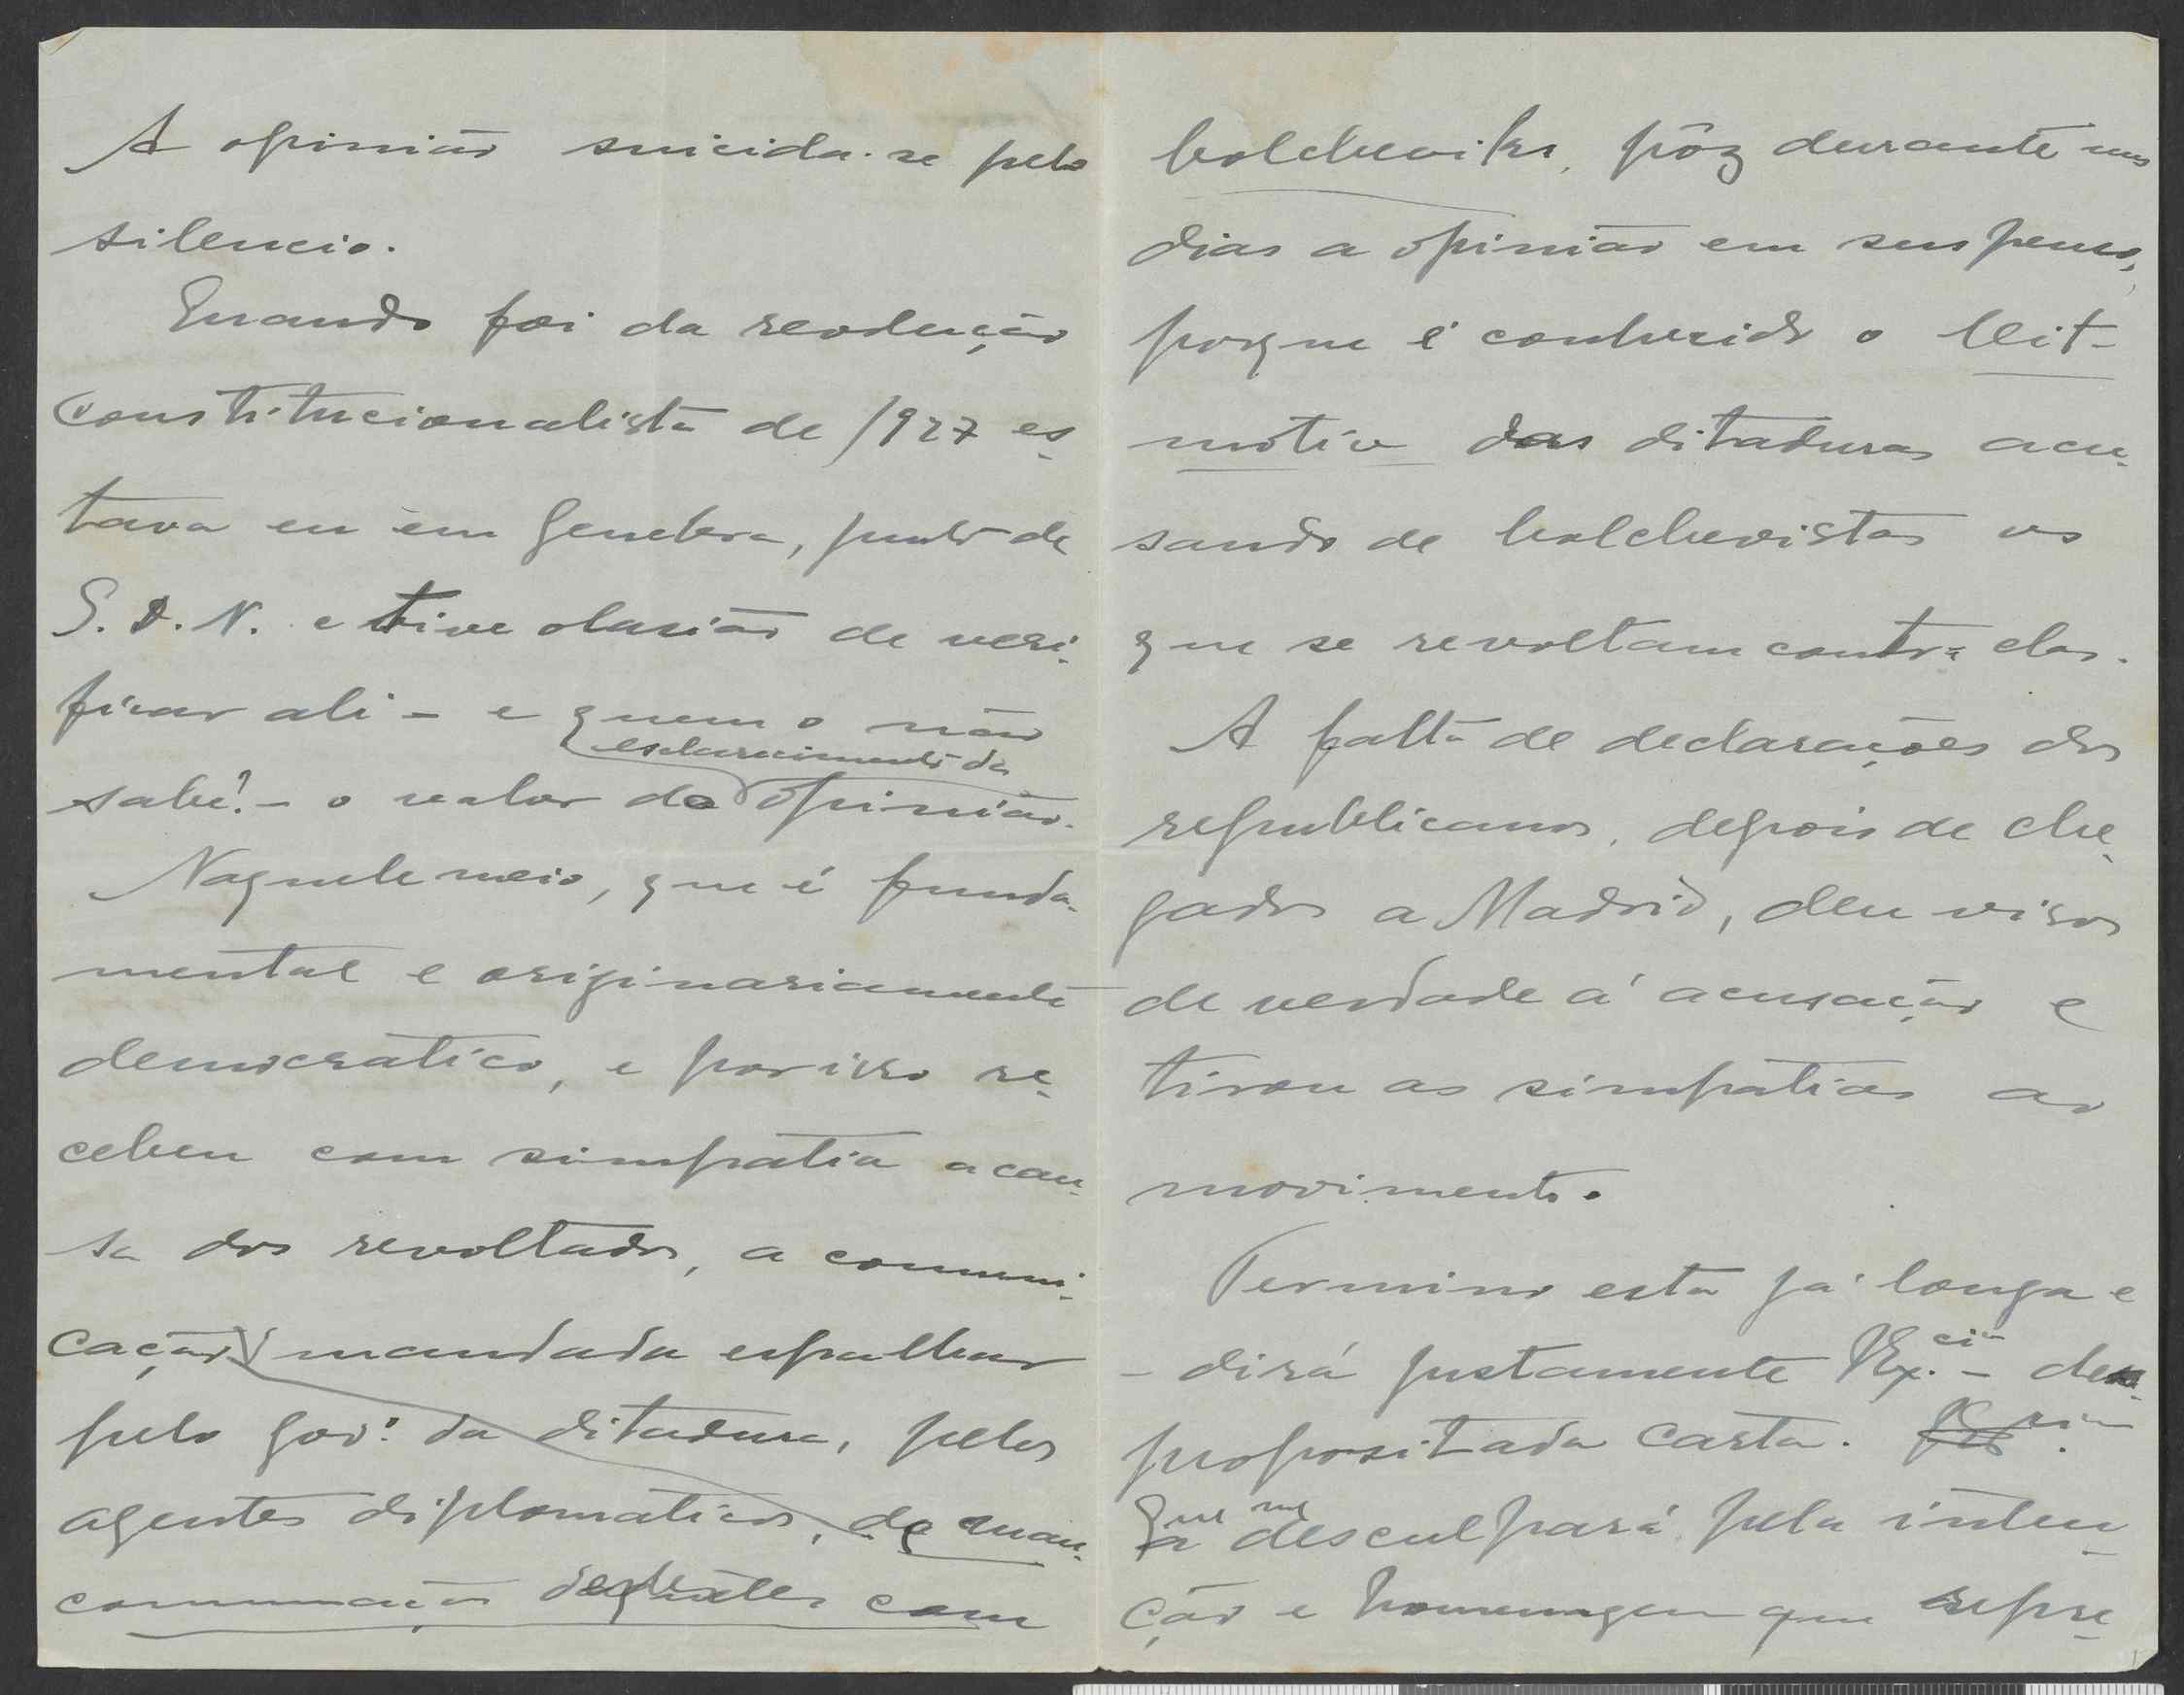 A opinião suicida-se pelo
silencio.
Quando foi da revolução
constitucionalista de 1927 es-
tava eu em Genebra, junto da
S. D. N. e tive ocasião de veri-
ficar ali - e quem o não
esclarecimento da
sabe? - o valor do opinião.
Naquele meio, que é funda-
mental e originariamente
democratico, e por isso re-
cebeu com simpatia a cau-
sa dos revoltados, a comuni-
cação mandada espalhar
pelo gov.º da ditadura, pelos
agentes diplomaticos, da man-
comunação destes com
bolcheviks, pôz durante uns
dias a opinião em suspenso,
porque é conhecido o leit-
motiv das ditaduras acu-
sando de bolchevistas os
que se revoltam contra elas.
A falta de declarações dos
republicanos, depois de che-
gados a Madrid, deu visos
de verdade á acusação e
tirou as simpatias ao
movimento.
Termino esta já longa e
- dirá justamente V Ex.cia - des-
propositada carta.
Que me
a desculpará pela inten-
ção e homenagem que repre-